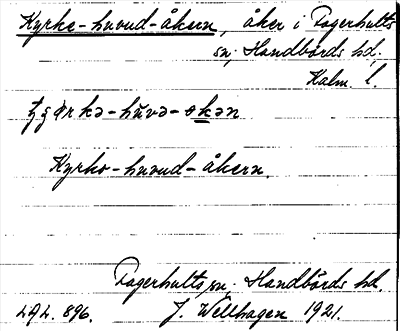 Kyrke-huvud-åkern, åker i Fagerhults
sn, Handbörds hd,
Kalm. l.
Kyrko-huvud-åkern.
Fagerhults sn, Handbörds hd.
J. Wellhagen 1921.